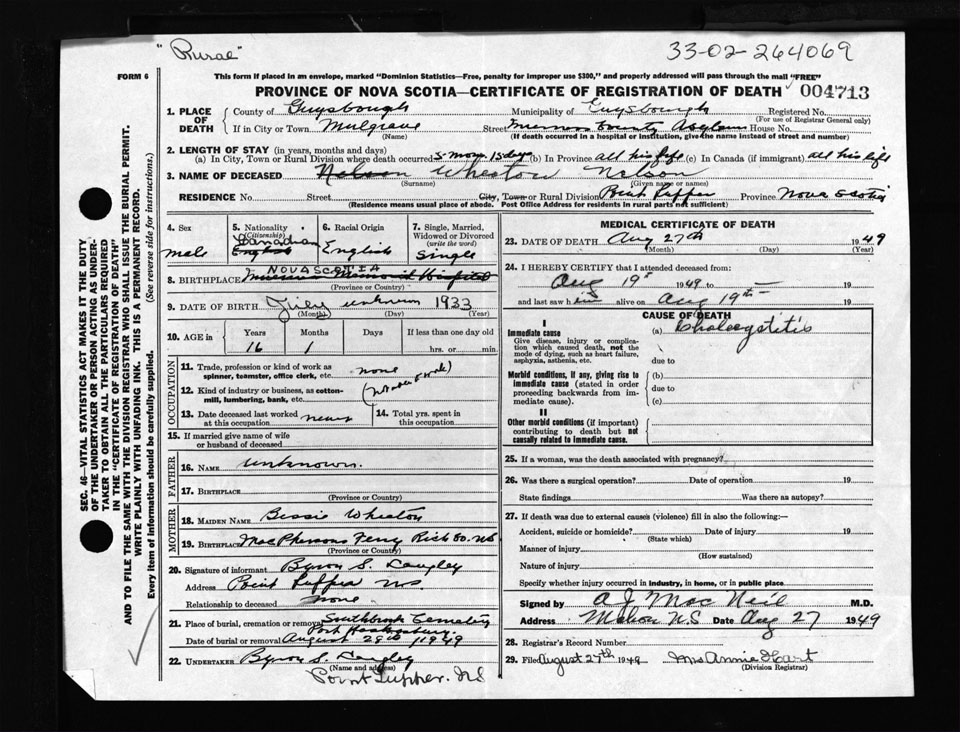 "Rural"
33-02-264069
FORM 6
This form if placed in an envelope, marked "Dominion Statistics—Free, penalty for improper use $300," and properly addressed will pass through the mail "FREE"
PROVINCE OF NOVA SCOTIA—CERTIFICATE OF REGISTRATION OF DEATH 004713
1. PLACE OF DEATH
County of Guysborough Municipality of Guysborough Registered No.
(For use of Registrar General only)
If in City or Town Mulgrave Street County Asylum House No.
(Name) (If death occurred in a hospital or institution, give the name instead of street and number)
2. LENGTH OF STAY (in years, months and days)
(a) In City, Town or Rural Division where death occurred 5 mos. 15 days (b) In Province all his life (c) In Canada (if immigrant) all his life
3. NAME OF DECEASED Nelson Wheaton Nelson
(Surname) (Given name or names)
RESIDENCE No. Street City, Town or Rural Division Point Tupper Province Nova Scotia
(Residence means usual place of abode. Post Office Address for residents in rural parts not sufficient)
4. Sex
male
5. Nationality
(Citizenship)
Canadian
English
6. Racial Origin
English
7. Single, Married, Widowed or Divorced
(write the word)
Single
NOVA SCOTIA
8. BIRTHPLACE Memorial Hospital
(Province or Country)
9. DATE OF BIRTH July unknown 1933
(Month) (Day) (Year)
10. AGE in
Years Months Days If less than one day old
16 1 hrs. or min.
OCCUPATION
11. Trade, profession or kind of work as spinner, teamster, office clerk, etc. none
12. Kind of industry or business, as cotton-mill, lumbering, bank, etc.
13. Date deceased last worked at this occupation never
14. Total yrs. spent in this occupation
15. If married give name of wife or husband of deceased
FATHER
16. NAME unknown.
17. BIRTHPLACE
(Province or Country)
MOTHER
18. MAIDEN NAME Bessie Wheaton
19. BIRTHPLACE MacPhersons Ferry Rich Co. NS
(Province or Country)
20. Signature of informant Byron S. Langley
Address Point Tupper NS
Relationship to deceased none
21. Place of burial, cremation or removal Southbrook Cemetery
Port Hawkesbury
Date of burial or removal August 28th 1949
22. UNDERTAKER Byron S. Langley
(Name and address)
Point Tupper. NS
MEDICAL CERTIFICATE OF DEATH
23. DATE OF DEATH Aug 27th 1949
(Month) (Day) (Year)
24. I HEREBY CERTIFY that I attended deceased from:
Aug 19th 1949 to 19
and last saw him alive on Aug 19th 19
CAUSE OF DEATH
I
Immediate cause
Give disease, injury or complication which caused death, not the mode of dying, such as heart failure, asphyxia, asthenia, etc.
(a) Cholecystitis
due to
Morbid conditions, if any, giving rise to immediate cause (stated in order proceeding backwards from immediate cause).
(b)
due to
(c)
II
Other morbid conditions (if important) contributing to death but not causally related to immediate cause.
25. If a woman, was the death associated with pregnancy?
26. Was there a surgical operation? Date of operation 19
State findings Was there an autopsy?
27. If death was due to external causes (violence) fill in also the following:—
Accident, suicide or homicide? Date of injury 19
(State which)
Manner of injury
(How sustained)
Nature of injury
Specify whether injury occurred in industry, in home, or in public place
Signed by A J MacNeil M.D.
Address N.S Date Aug 27 1949
28. Registrar's Record Number
29. Filed August 27th 1949 Mrs Annie Hart
(Division Registrar)
SEC. 46—VITAL STATISTICS ACT MAKES IT THE DUTY
OF THE UNDERTAKER OR PERSON ACTING AS UNDER-
TAKER TO OBTAIN ALL THE PARTICULARS REQUIRED
IN THE "CERTIFICATE OF REGISTRATION OF DEATH"
AND TO FILE THE SAME WITH THE DIVISION REGISTRAR WHO SHALL ISSUE THE BURIAL PERMIT.
WRITE PLAINLY WITH UNFADING INK. THIS IS A PERMANENT RECORD.
Every item of information should be carefully supplied. (See reverse side for instructions.)